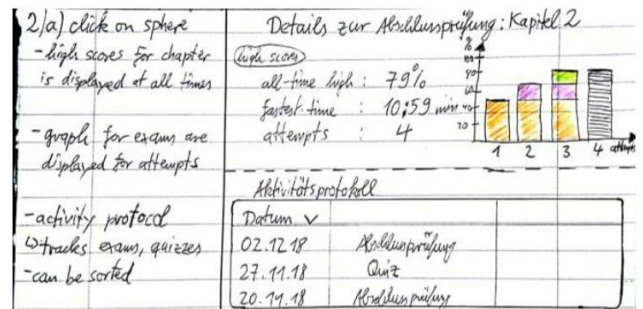 2/a) click on sphere
- high scores for chapter
is displayed at all times
- graph for exams are
displayed for attempts
- activity protocol
↳ tracks exams, quizzes
- can be sorted
Details zur Abschlussprüfung: Kapitel 2
high scores
all-time high : 79%
fastest time : 10:59 min
attempts : 4
%
100
80
60
40
20
1 2 3 4 attempts
Aktivitätsprotokoll
Datum ∨
02.12.18 Abschlussprüfung
27.11.18 Quiz
20.11.18 Abschlussprüfung